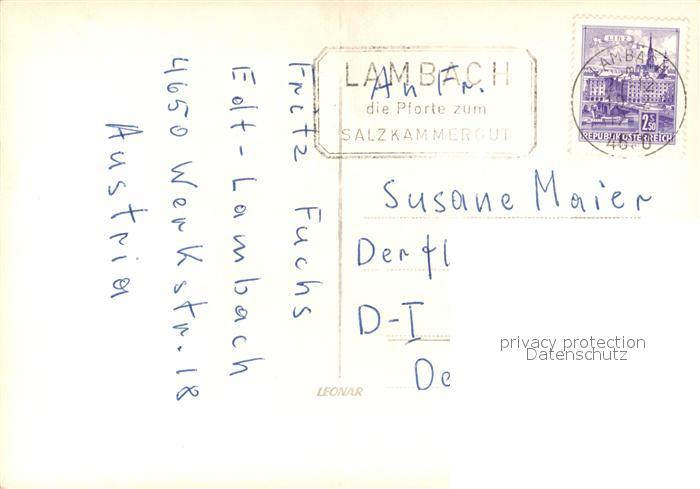 Fritz Fuchs
Edt-Lambach
4650 Werkstr. 18
Austria
LAMBACH
die Pforte zum
SALZKAMMERGUT
LINZ
LAMBACH
2.50
REPUBLIK ÖSTERREICH
An Fr.
Susane Maier
Derfl
D-I
De
privacy protection
Datenschutz
LEONAR